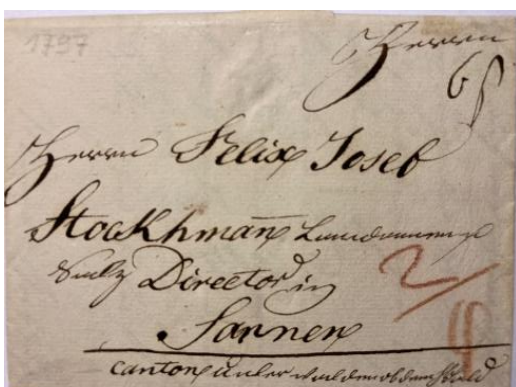 1797
Herrn
6f
Herrn Felix Josef
Stockhman̄ Landammann
Saltz Director in
2/
Sarnen
canton unterwalden ob dem Wald